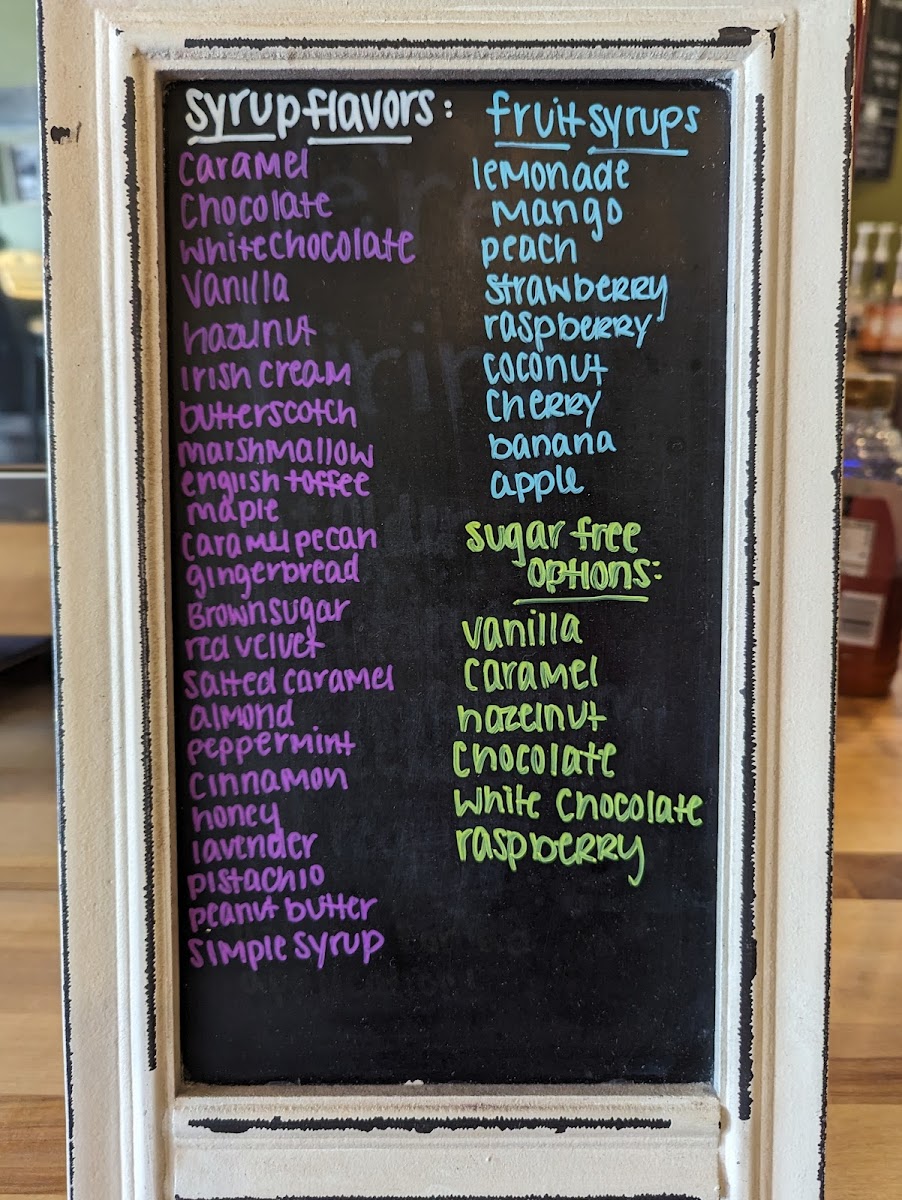 syrup flavors:
caramel
chocolate
white chocolate
vanilla
hazlnut
irish cream
butterscotch
marshmallow
english toffee
maple
caramel pecan
gingerbread
brown sugar
red velvet
salted caramel
almond
peppermint
cinnamon
honey
lavender
pistachio
peanut butter
simple syrup
fruit syrups
lemonade
mango
peach
strawberry
raspberry
coconut
cherry
banana
apple
sugar free
options:
vanilla
caramel
hazelnut
chocolate
white chocolate
raspberry